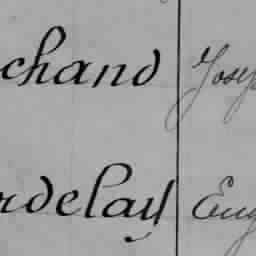 chand Josep
rdelay Eug